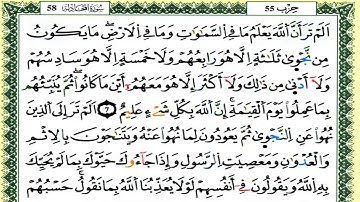 58 سورة المجادلة حزب 55
الم تر ان الله يعلم ما في السماوات وما في الارض ما يكون
من نجوى ثلاثة الا هو رابعهم ولا خمسة الا هو سادسهم
ولا ادنى من ذلك ولا اكثر الا هو معهم اين ما كانوا ثم ينبئهم
بما عملوا يوم القيامة ان الله بكل شيء عليم 7 الم تر الى الذين
نهوا عن النجوى ثم يعودون لما نهوا عنه ويتناجون بالاثم
والعدوان ومعصيت الرسول واذا جاءوك حيوك بما لم يحيك
به الله ويقولون في انفسهم لولا يعذبنا الله بما نقول حسبهم